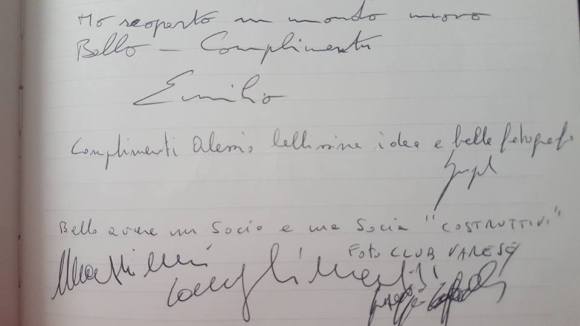 Ho scoperto un mondo nuovo
Bello - Complimenti
Emilio
Complimenti Alessio bellissime idea e belle fotografie
Bello avere un Socio e una Socia "COSTRUTTIVI"
FOTO CLUB VARESE
Complimenti